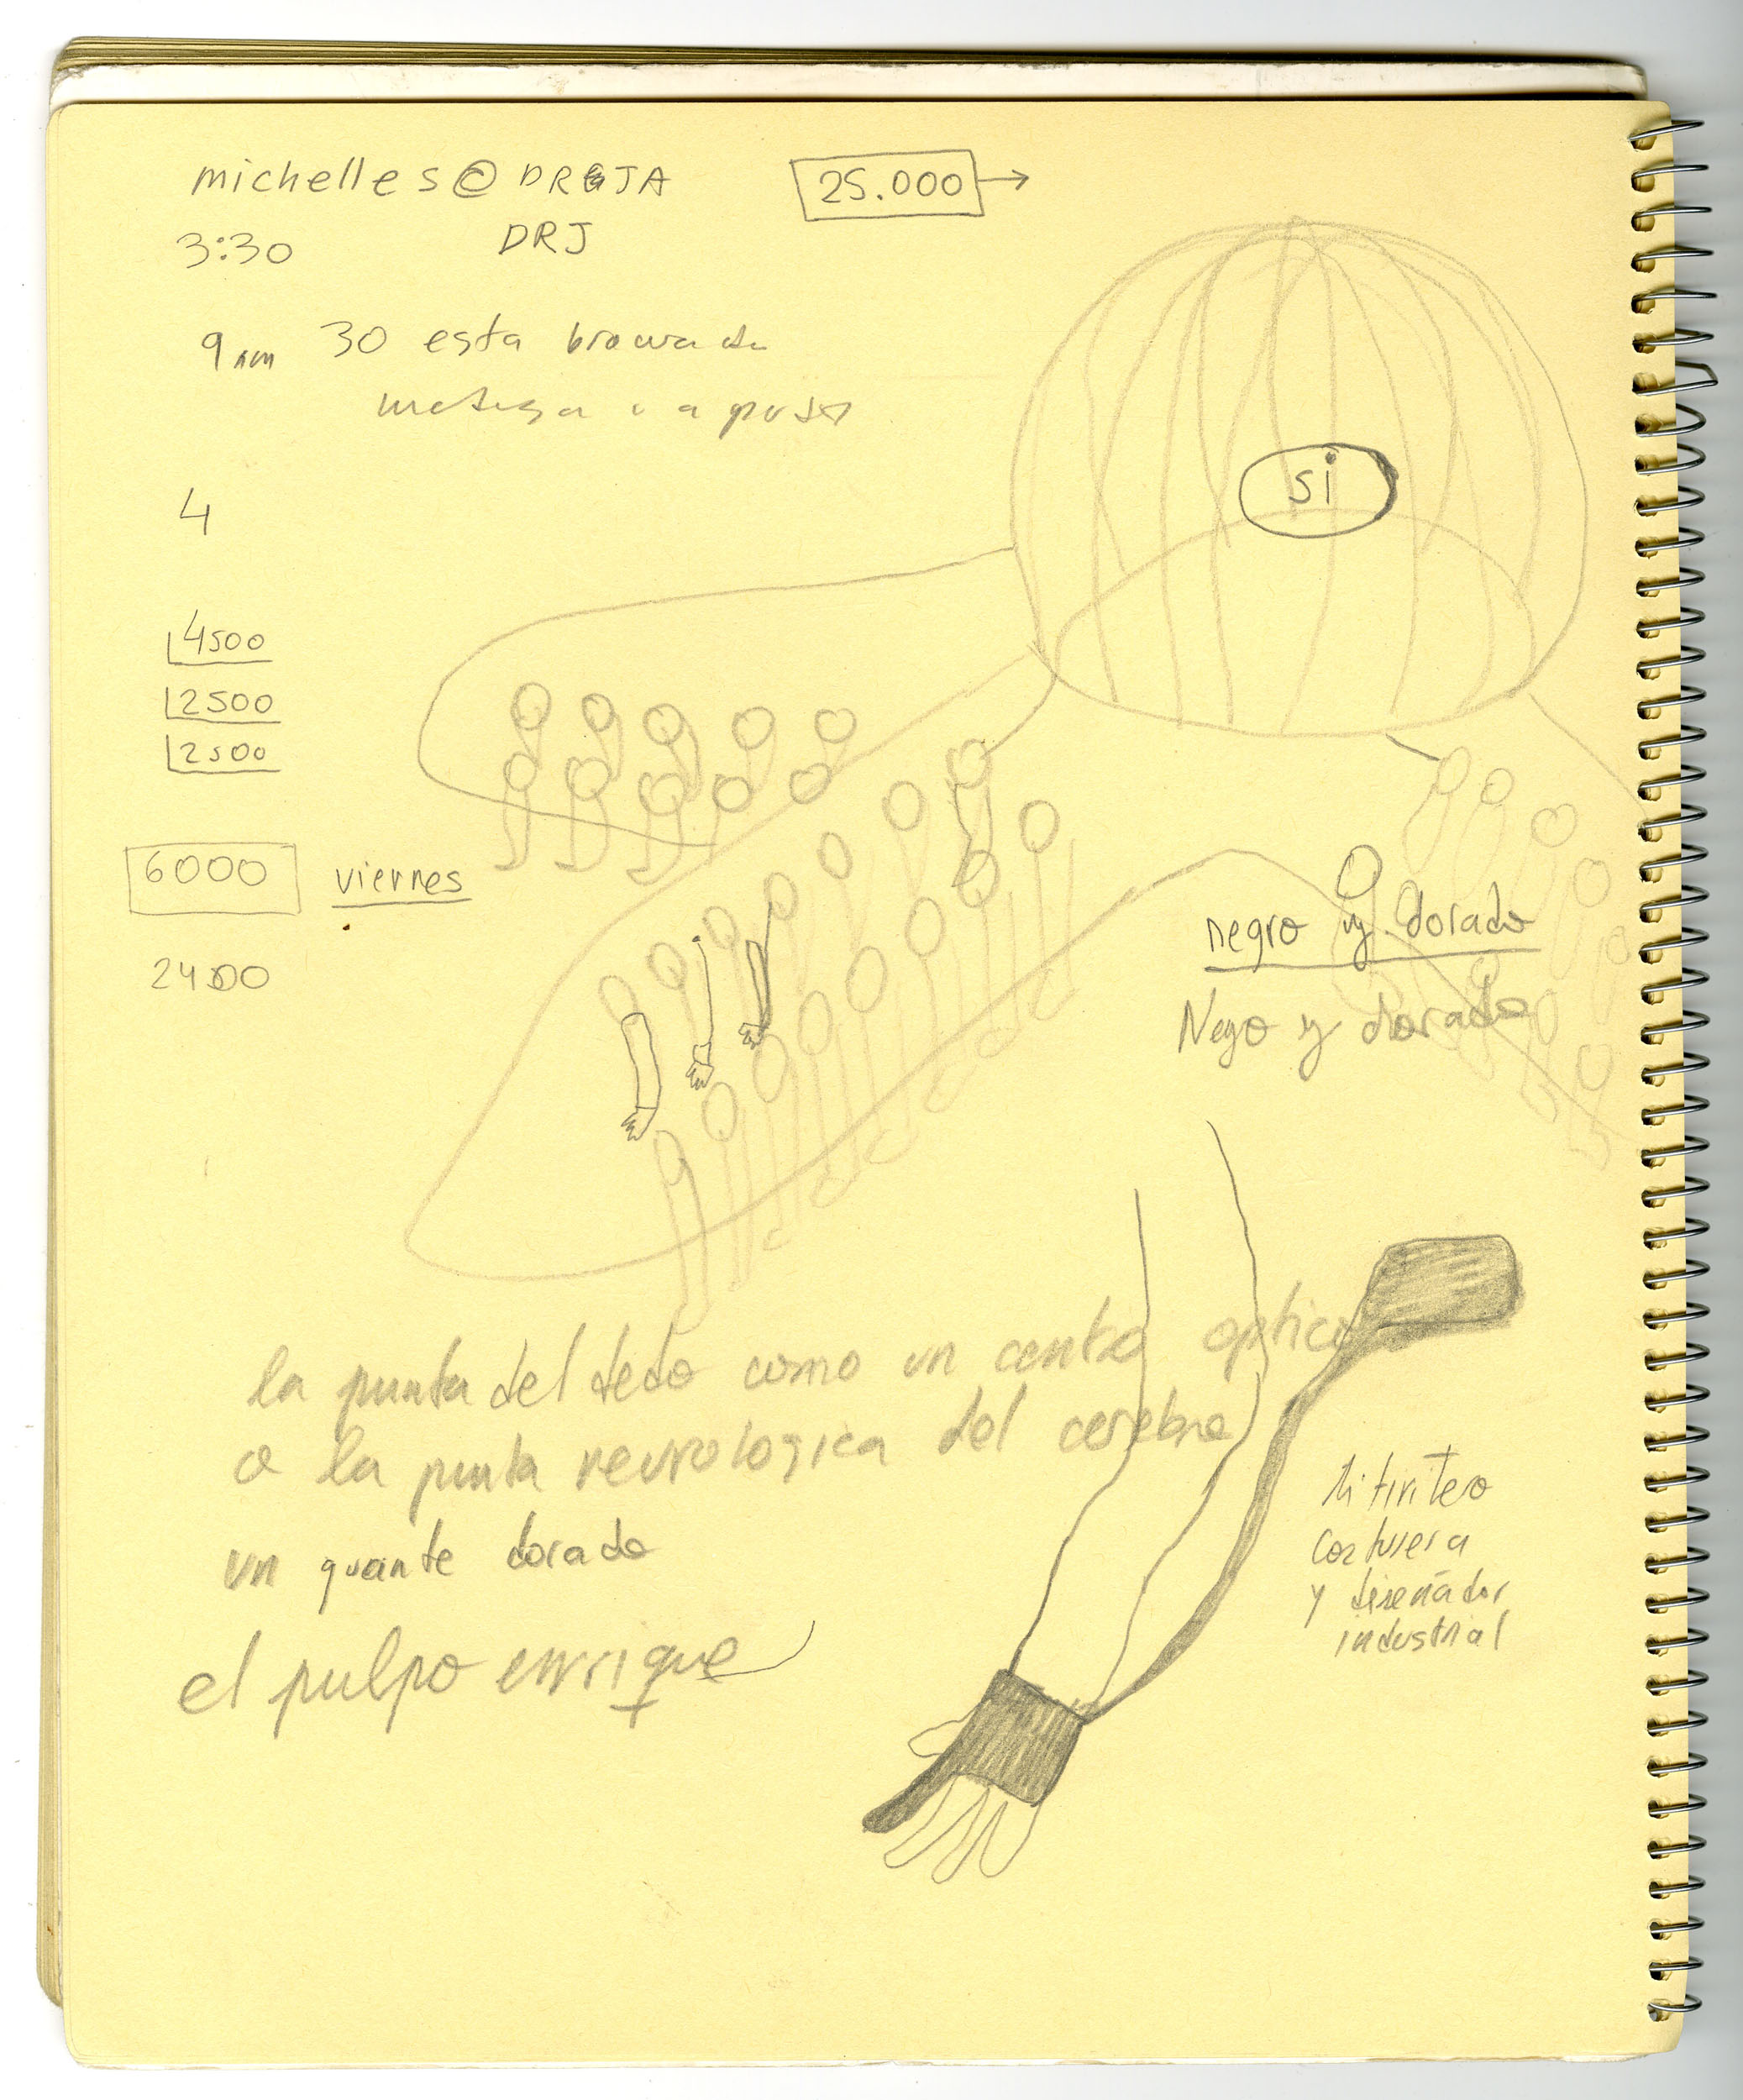 michelles@DRGJA
25.000
3:30
DRJ
9 am 30 esta
4
4500
2500
2500
si
6000 viernes
2400
negro y dorado
Nego y dorado
la punta del dedo como un centro optico
o la punta neurologica del cerebro
un guante dorado
el pulpo enrique
titiritero
costurera
y diseñador
industrial